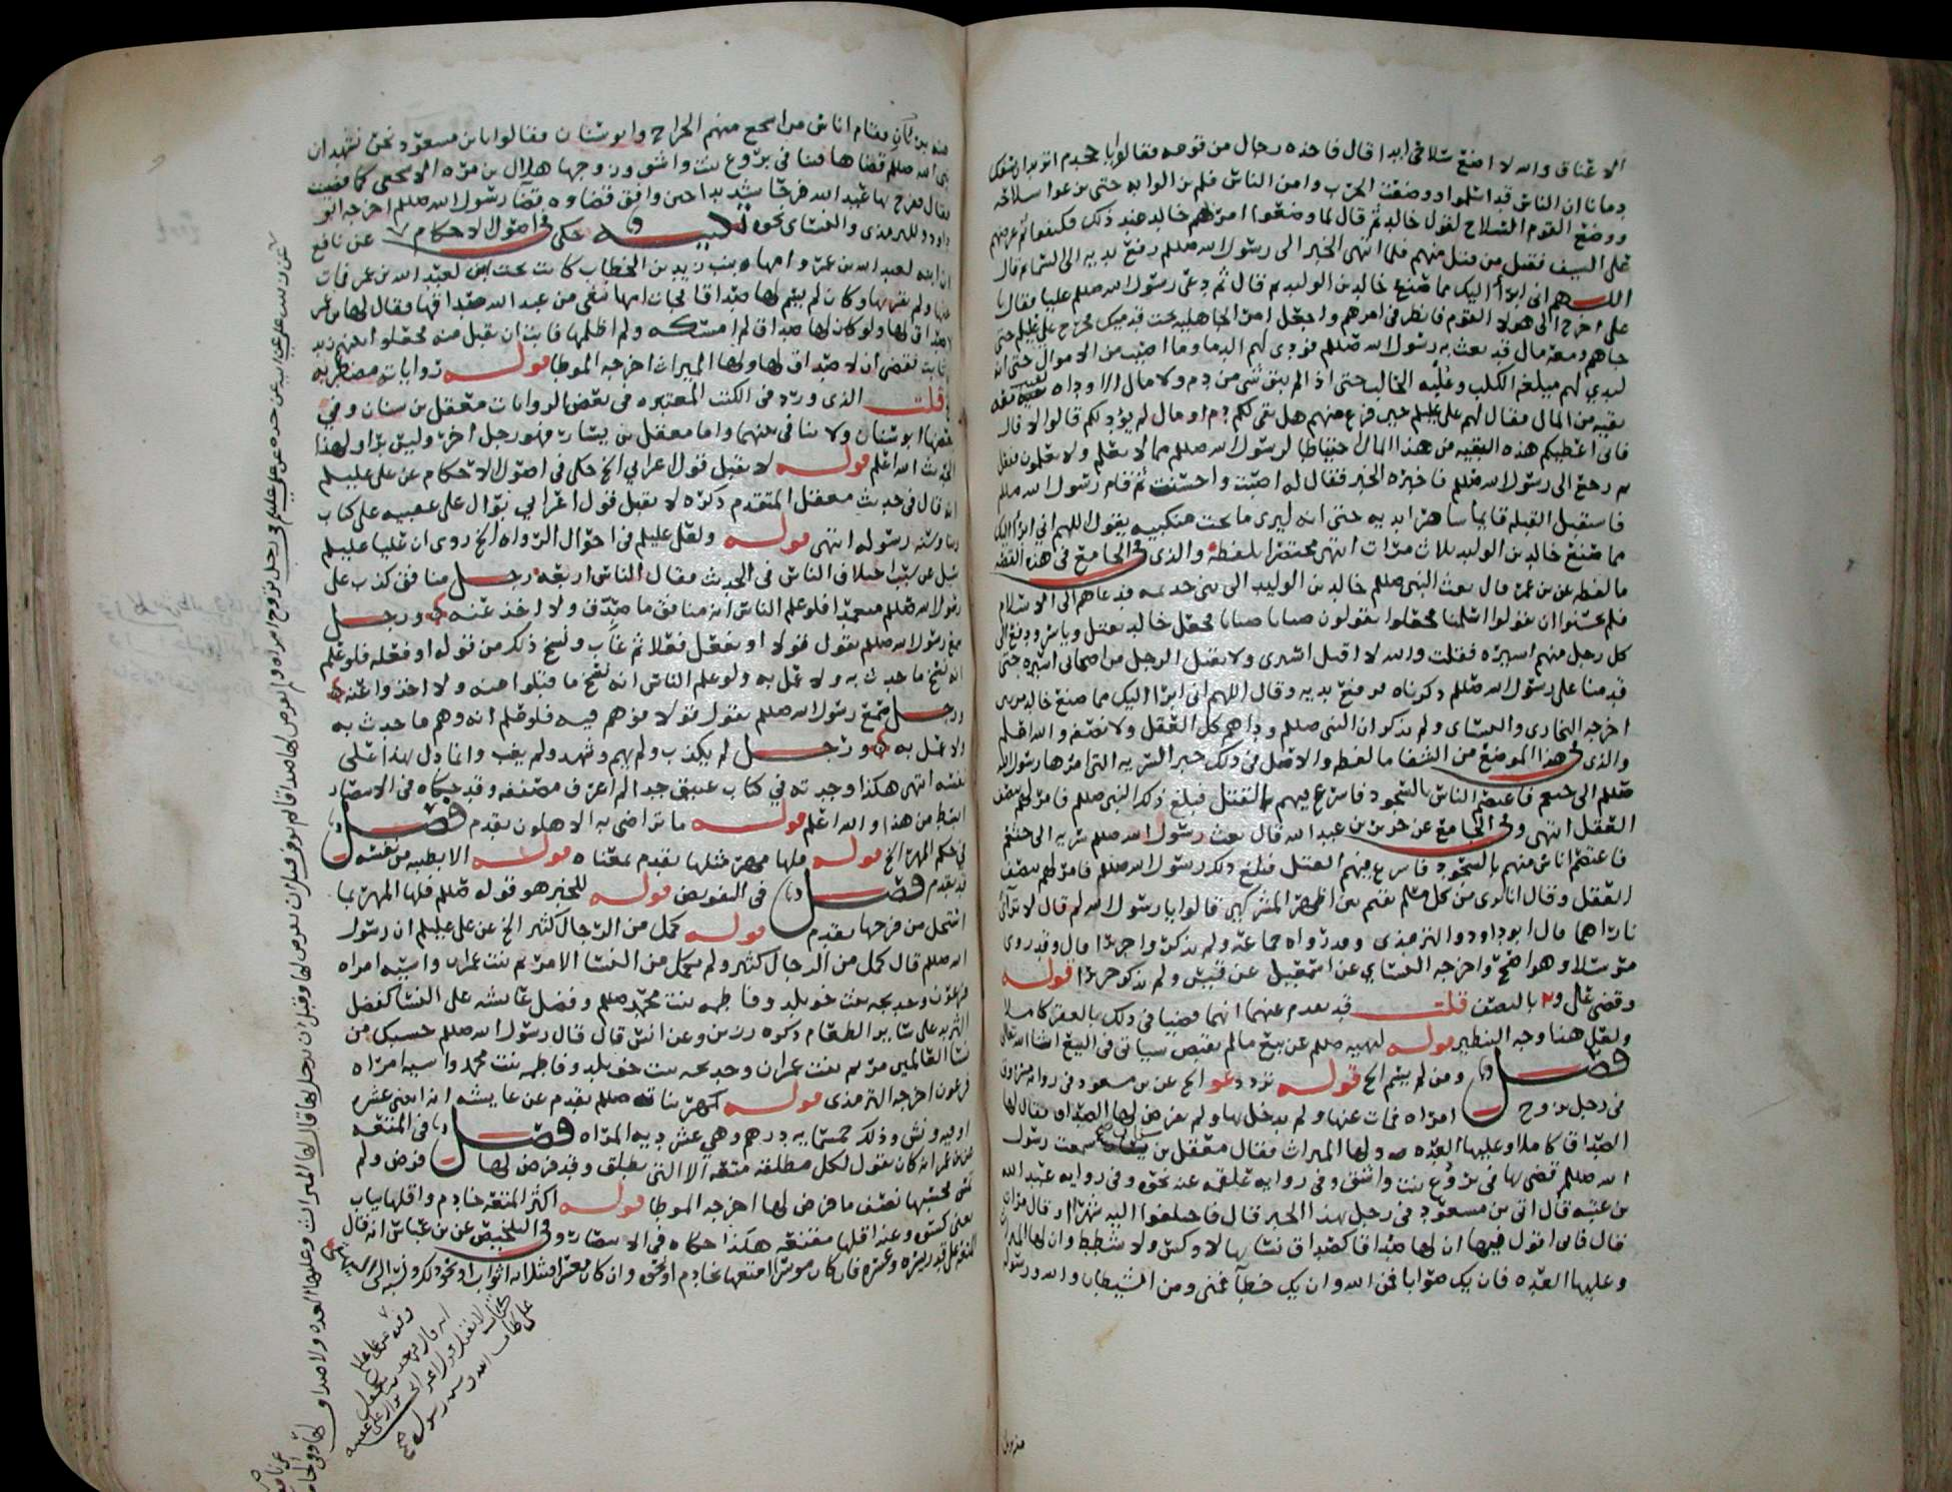 الاعناق والله لا اضع سلاحي ابدا قال فاخذه رجال من قومه فقالوا يا جحدم اتريد ان تسفك
دمانا ان الناس قد اسلموا ووضعت الحرب وامن الناس فلم يزالوا به حتى نزعوا سلاحه
ووضع القوم السلاح لقول خالد ثم قال لما وضعوا امر بهم خالد عند ذلك فكتفوا ثم عرضهم
على السيف فقتل من قتل منهم فلما انتهى الخبر الى رسول الله صللم رفع يديه الى السماء ثم قال
اللهم اني ابرأ اليك مما صنع خالد بن الوليد ثم قال ثم دعى رسول الله صللم عليا فقال يا
علي اخرج الى هولا القوم فانظر في امرهم واجعل امر الجاهلية تحت قدميك فخرج علي عليلم حتى
جاهم ومعه مال قد بعث به رسول الله صللم فودى لهم الدما وما اصيب من الاموال حتى انه
ليدي لهم ميلغة الكلب حتى اذا لم يبق شي من دم ولا مال الا وداه بقيت معه
بقيه من المال فقال لهم علي عليلم حين فرغ منهم هل بقى لكم دم او مال لم يؤد لكم قالوا لا قال
فاني اعطيكم هذه البقيه من هذا المال احتياطا لرسول الله صللم مما لا يعلم ولا تعلمون ففعل
ثم رجع الى رسول الله صللم فاخبره الخبر فقال له اصبت واحسنت ثم قام رسول الله صللم
فاستقبل القبلة قايما شاهرا يديه حتى انه ليرى ما تحت منكبيه يقول اللهم اني ابرأ اليك
مما صنع خالد بن الوليد ثلاث مرات انتهى مختصرا بلفظه والذي في الجامع في هذه القصه
ما لفظه عن بن عمر قال بعث النبي صللم خالد بن الوليد الى بني جذيمه فدعاهم الى الاسلام
فلم يحسنوا ان يقولوا اسلمنا فجعلوا يقولون صبانا صبانا فجعل خالد يقتل وياسر ودفع الى
كل رجل منهم اسيره فقلت والله لا اقتل اسيري ولا يقتل الرجل من اصحابي اسيره حتى
قدمنا على رسول الله صللم ذكرناه فرفع يديه وقال اللهم اني ابرأ اليك مما صنع خالد مرتين
اخرجه البخاري والنساي ولم يذكر ان النبي صللم وداهم كل العقل ولا نصفه والله اعلم
والذي في هذا الموضع من الشفا ما لفظه والاصل في ذلك خبر السريه التي امرها رسول الله
صللم الى خثعم فاعتصم الناس بالسجود فاسرع فيهم بالقتل فبلغ ذلك النبي صللم فامر لهم بنصف
العقل انتهى وفي الجامع عن جرير بن عبد الله قال بعث رسول الله صللم سريه الى خثعم
فاعتصم اناس منهم بالسجود فاسرع فيهم القتل فبلغ ذلك رسول الله صللم فامر لهم بنصف
العقل وقال انا بري من كل مسلم يقيم بين اظهر المشركين قالوا يا رسول الله لم قال لا تراى
ناراهما قال ابو داود والترمذي وقد رواه جماعه ولم يذكروا جريرا قال وقد روى
مرسلا وهو اصح واخرجه النساي عن اسمعيل عن قيس ولم يذكر جريرا قوله
وقضى علي و٢ بالنصف قلت قد تقدم عنهما انهما قضيا في ذلك بالعقر كاملا
ولعل هنا وجه التنظير قوله لنهيه صللم عن بيع ما لم يقبض سياتي في البيع انشا الله تعالى
فصل ومن لم يسم الخ قوله تردد دعو الخ عن بن مسعود في روايه مسروق
في رجل تزوج امراه فمات عنها ولم يدخل بها ولم يفرض لها الصداق فقال لها
الصداق كاملا وعليها العده ولها الميراث فقال معقل بن سنان سمعت رسول
الله صللم قضى بها في بروع بنت واشق وفي روايه علقمه عنه نحوه وفي روايه عبد الله
بن عتبه قال اتي بن مسعود في رجل بهذا الخبر قال فاختلفوا اليه شهرا او قال مرات
قال فاني اقول فيها ان لها صداقا كصداق نسائها لا وكس ولا شطط وان لها الميراث
وعليها العده فان يك صوابا فمن الله وان يك خطأ فمني ومن الشيطان والله ورسوله
فقام اناس من اشجع منهم الجراح وابو سنان فقالوا يا بن مسعود نحن نشهد ان
نبي الله صللم قضاها فينا في بروع بنت واشق وزوجها هلال بن مره الاشجعي كما قضيت
فقال ففرح بها عبد الله فرحا شديدا حين وافق قضاوه قضا رسول الله صللم اخرجه ابو
داود وللترمذي والنساي نحوه تنبيه حكى في اصول الاحكام عن نافع
ان ابنه لعبد الله بن عمر وامها بنت زيد بن الخطاب كانت تحت ابن لعبد الله بن عمر فمات
عنها ولم يقربها وكان لم يسم لها صداقا فجات امها تبغي من عبد الله صداقها فقال لها بن عمر
لا صداق لها ولو كان لها صداق لم امسكه ولم اظلمها فابت ان تقبل منه فجعلوا بينهم زيد
بن ثابت فقضى ان لا صداق لها ولها الميراث اخرجه الموطا قوله روايات مضطربه
قلت الذي ورد في الكتب المعتبره في بعض الروايات معقل بن سنان وفي
بعضها ابو سنان ولا تنافي بينهما واما معقل بن يسار فهو رجل اخر وليس براو لهذا
الحديث الله اعلم قوله لا يقبل قول اعرابي الخ حكى في اصول الاحكام عن علي عليلم
انه قال في حديث معقل المتقدم ذكره لا يقبل قول اعرابي بوال على عقبيه على كتاب
الله وسنه رسوله انتهى قوله ولعل عليلم في احوال الرواه الخ روي ان عليا عليلم
سئل عن سبب اختلاف الناس في الحديث فقال الناس اربعه رجل منافق كذب على
رسول الله صللم متعمدا فلو علم الناس انه منافق ما صدق ولا اخذ عنه ورجل
سمع رسول الله صللم يقول قولا او يفعل فعلا ثم غاب ونسخ ذلك من قوله او فعله فلو علم
انه نسخ ما حدث به ولا عمل به ولو علم الناس انه نسخ ما قبلوا منه ولا اخذوا عنه
ورجل سمع رسول الله صللم يقول قولا فوهم فيه فلو علم انه وهم ما حدث به
ولا عمل به ورجل لم يكذب ولم يهم وشهد ولم يغب وانما دل بهذا على
نفسه انتهى هكذا وجدته في كتاب عتيق جدا لم اعرف مصنفه وقد حكاه في الانتصار
ابسط من هذا والله اعلم قوله ما تراضى به الاهلون تقدم فصل
في حكم المهر الخ قوله فلها مهر مثلها تقدم معناه قوله الا بطيبة من نفسه
قد تقدم فصل في التفويض قوله للخبر هو قوله صللم فلها المهر بما
استحل من فرجها تقدم قوله كمل من الرجال كثير الخ عن علي عليلم ان رسول
الله صللم قال كمل من الرجال كثير ولم يكمل من النسا الا مريم بنت عمران واسيه امراه
فرعون وخديجه بنت خويلد وفاطمه بنت محمد صللم وفضل عائشه على النسا كفضل
الثريد على ساير الطعام ذكره رزين وعن انس قال قال رسول الله صللم حسبك من
نسا العالمين مريم بنت عمران وخديجه بنت خويلد وفاطمه بنت محمد واسيه امراه
فرعون اخرجه الترمذي قوله كمهر بناته صللم تقدم عن عايشه انه اثنى عشره
اوقيه ونش وذلك خمسمايه درهم وهي عشر ديه المراه فصل في المتعه
عن بن عمر انه كان يقول لكل مطلقه متعه الا التي تطلق وقد فرض لها فرض ولم
تمس فحسبها نصف ما فرض لها اخرجه الموطا قوله اكثر المتعه خادم واقلها ثياب
يعني كسوه وعنه اقلها مقنعه هكذا حكاه في الانتصار وفي التلخيص عن بن عباس انه قال
المتعه على قدر يسره وعسره فان كان موسرا متعها بخادم او نحوه وان كان معسرا فبثلاثه اثواب او نحو ذلك
عن زيد بن علي عن ابيه عن جده عن علي عليلم في رجل تزوج امراه ولم يفرض لها صداقا ثم توفي قبل ان يفرض لها وقبل ان يدخل بها قال لها الميراث وعليها العده ولا صداق لها